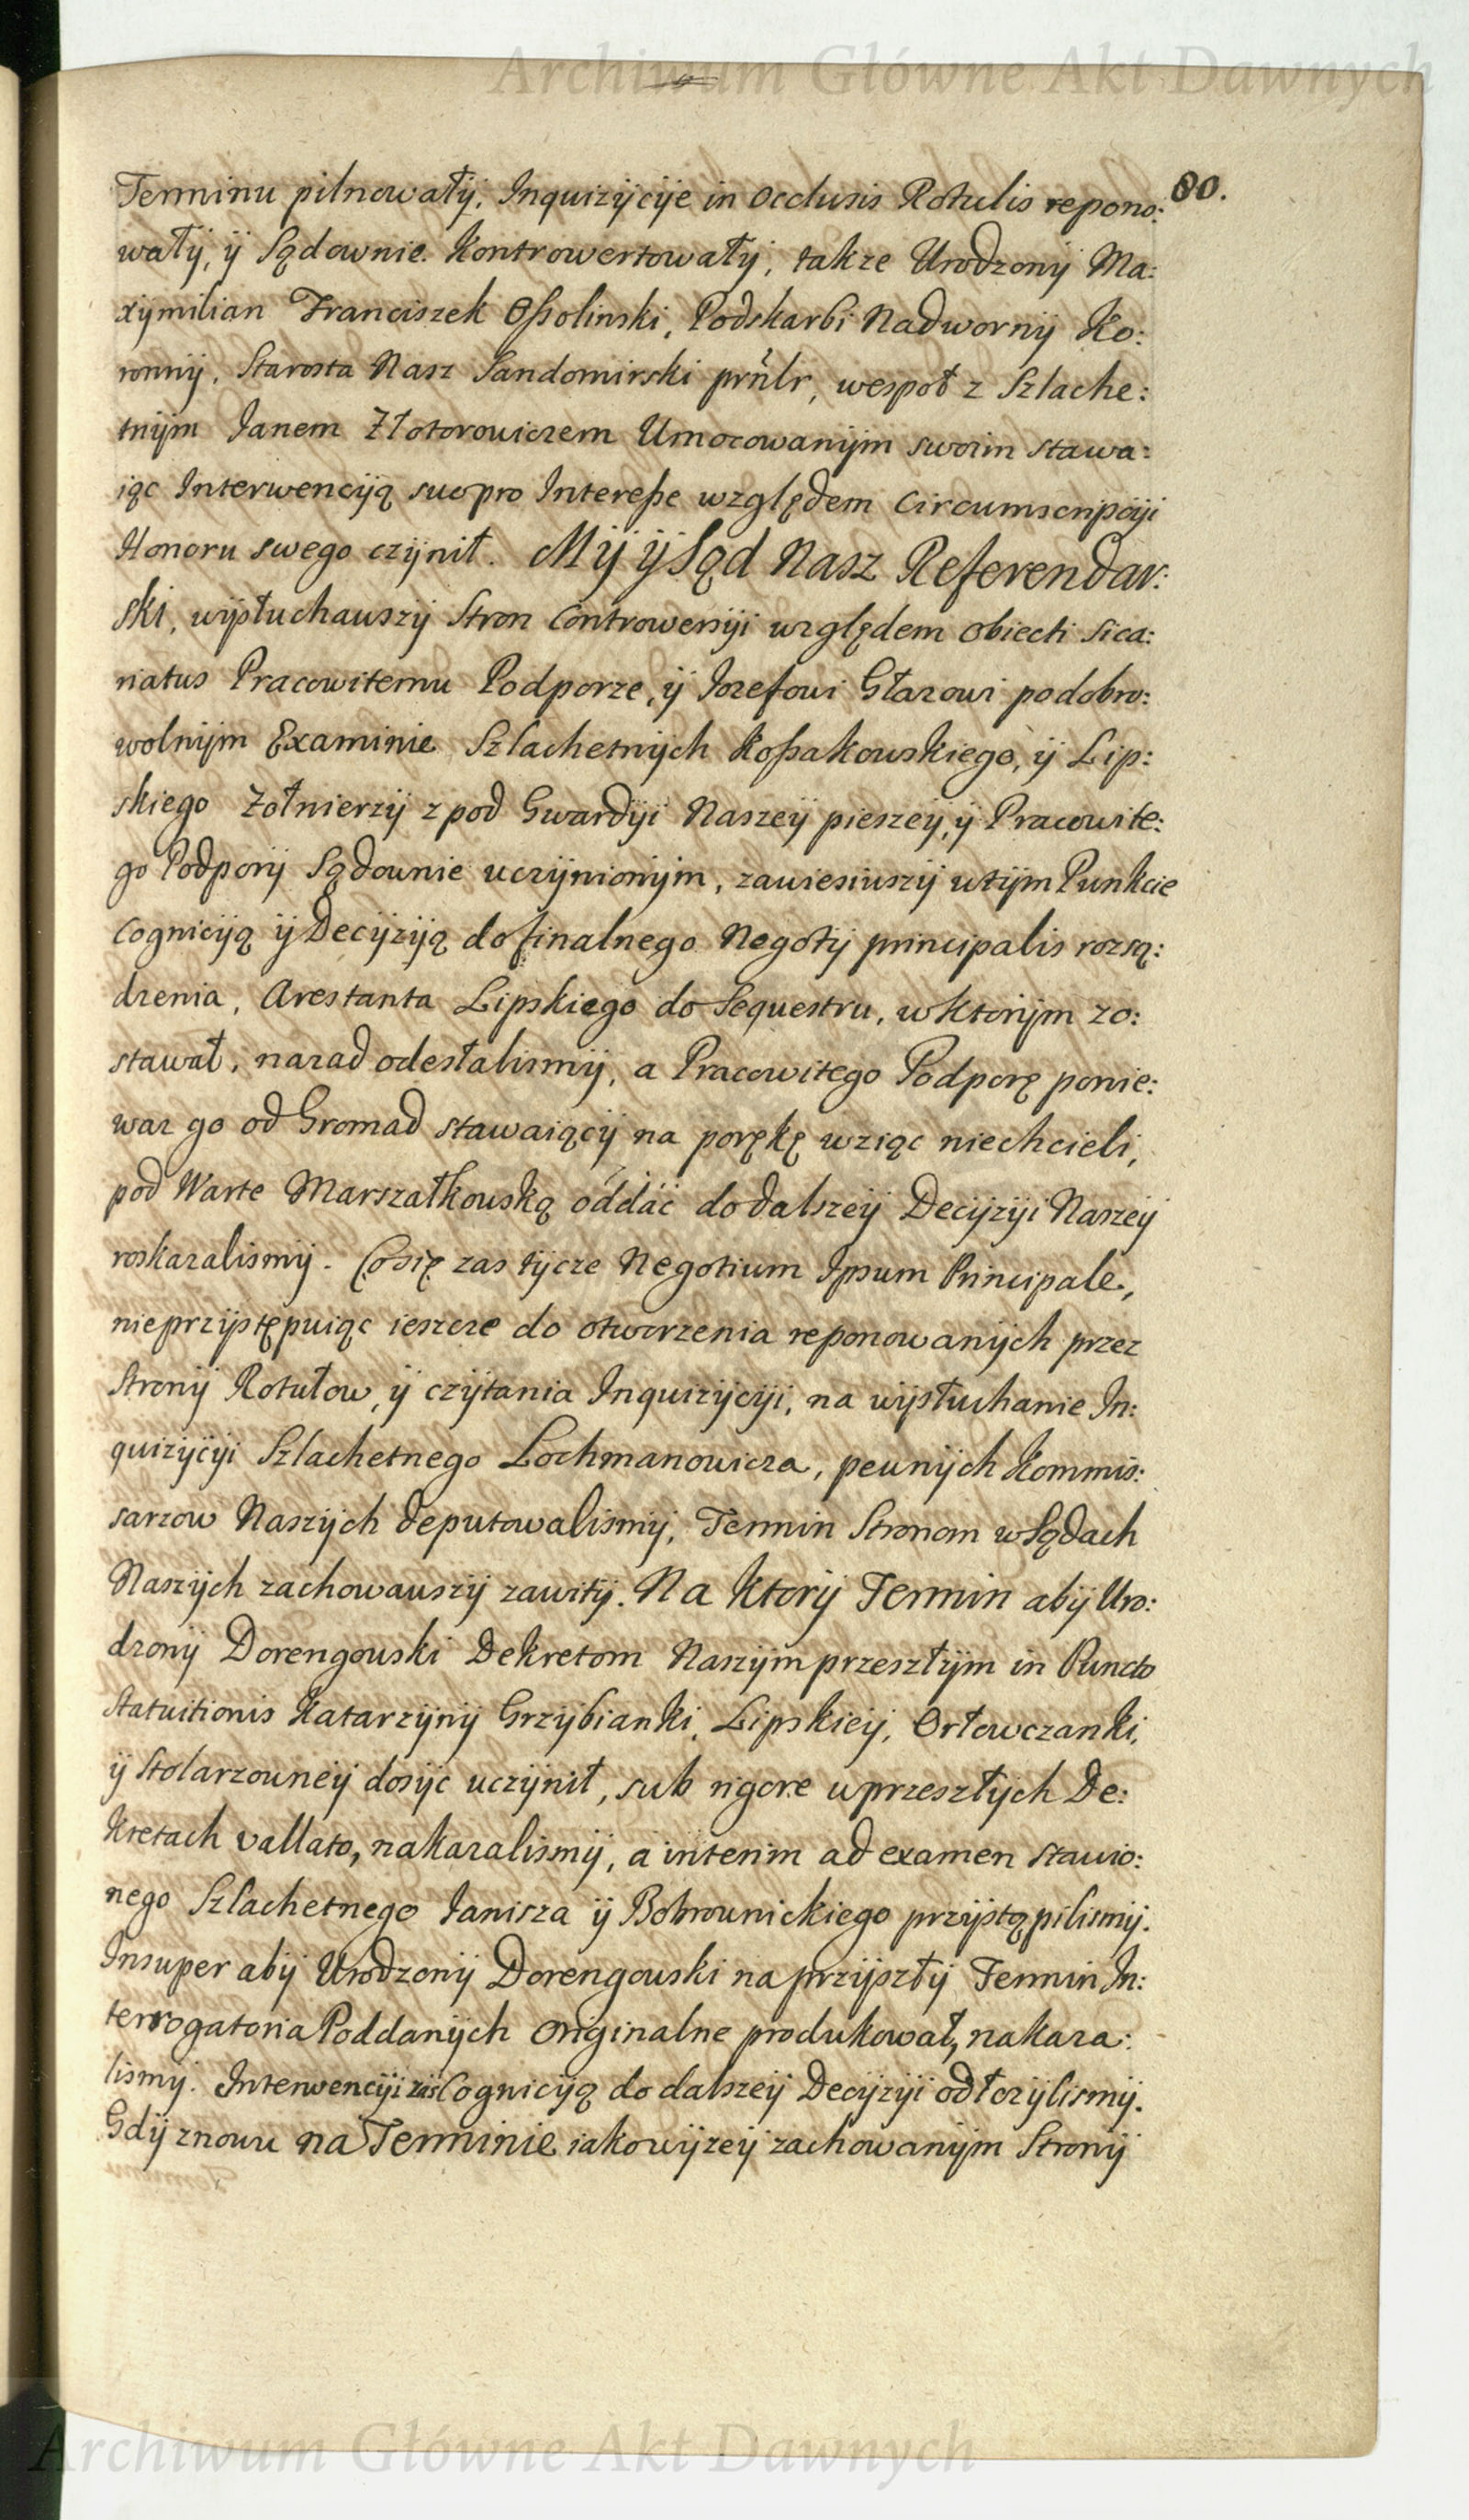 Archiwum Główne Akt Dawnych
80.
Terminu pilnowały, Inquizycije in occlusis Rotulis repono:
wały, ÿ Sądownie kontrowertowały, takze Urodzony Ma:
xymilian Franciszek Oſsolinski, Podskarbi Nadworny Ko:
ronny, Starosta Nasz Sandomirski prńlr, wespoł z Szlache:
tnym Janem Złotorowiczem Umocowanym swoim stawa:
iąc Interwencyą suo pro Intereſse względem Circumscripcyi
Honoru swego czynił. My ÿ Sąd Nasz Referendar:
ski, wysłuchawszy Stron Controwersyi względem obiecti sica:
riatus Pracowitemu Podporze, ÿ Jozefowi Głazowi po dobro:
wolnym Examinie Szlachetnych Koſsakowskiego, ÿ Lip:
skiego Zołnierzy z pod Gwardyi Naszey pieszey, ÿ Pracowite:
go Podpory Sądownie uczynionym, zawiesiwszy w tym Punkcie
Cognicyą ÿ Decyzyą do finalnego Negoty principalis rozsą:
dzenia, Arestanta Lipskiego do Sequestru, w ktorym zo:
stawał, nazad odesłalismy, a Pracowitego Podporę ponie:
waz go od Gromad stawaiący na porękę wziąc niechcieli,
pod Warte Marszałkowską oddać do dalszey Decyzyi Naszey
roskazalismy. Co się zas tycze Negotium Ipsum Principale,
nieprzystępuiąc ieszcze do otworzenia reponowanych przez
Strony Rotułow, ÿ czytania Inquizycyi, na wysłuchanie In:
quizycyi Szlachetnego Lochmanowicza, pewnych Kommis:
sarzow Naszych deputowalismy, Termin Stronom w Sądach
Naszych zachowawszy zawity. Na ktory Termin aby Uro:
dzony Dorengowski Dekretom Naszym przeszłym in Puncto
Statuitionis Katarzyny Grzybianki, Lipskiey, Orłowczanki,
ÿ Stolarzowney dosyc uczynił, sub rigore w przeszłych De:
kretach vallato, nakazalismy, a interim ad examen stawio:
nego Szlachetnego Janisza ÿ Bobrownickiego przystąpilismy.
Insuper aby Urodzony Dorengowski na przyszły Termin In:
terrogatoria Poddanych originalne produkował, nakaza:
lismy. Interwencyi zas Cognicyą do dalszey Decyzyi odłozylismy.
Gdy znowu na Terminie iakowyzey zachowanym Strony
Archiwum Główne Akt Dawnych